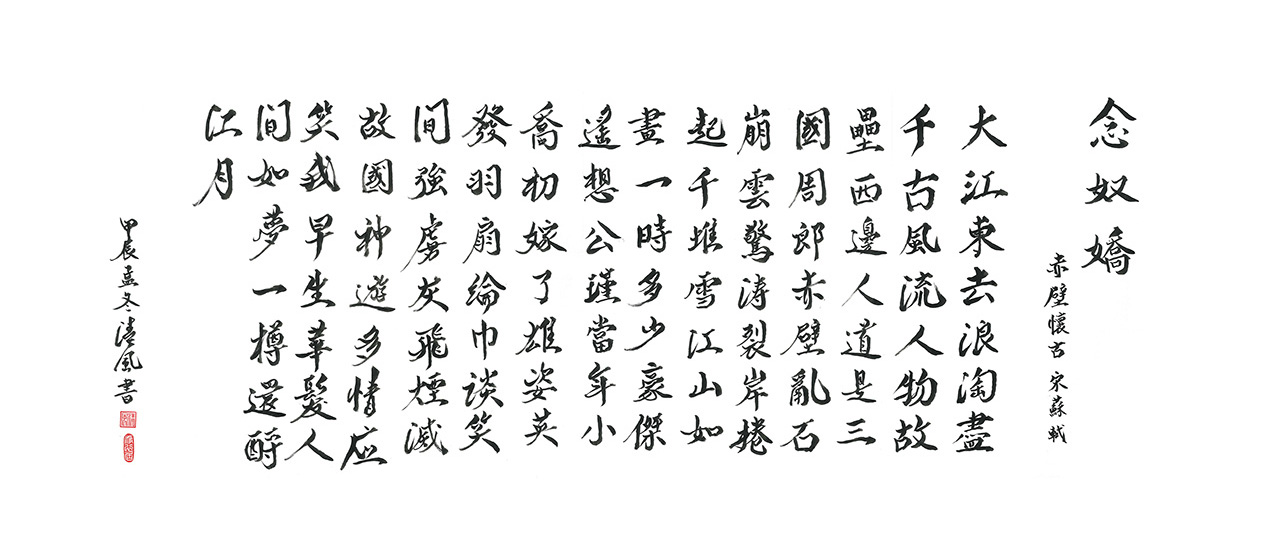 念奴嬌
赤壁懷古 宋蘇軾
大江東去浪淘盡
千古風流人物故
壘西邊人道是三
國周郎赤壁亂石
崩雲驚涛裂岸捲
起千堆雪江山如
畫一時多少豪傑
遙想公瑾當年小
喬初嫁了雄姿英
發羽扇綸巾谈笑
間強虜灰飛煙滅
故國神遊多情应
笑我早生華髮人
間如夢一樽還酹
江月
甲辰孟冬清風書